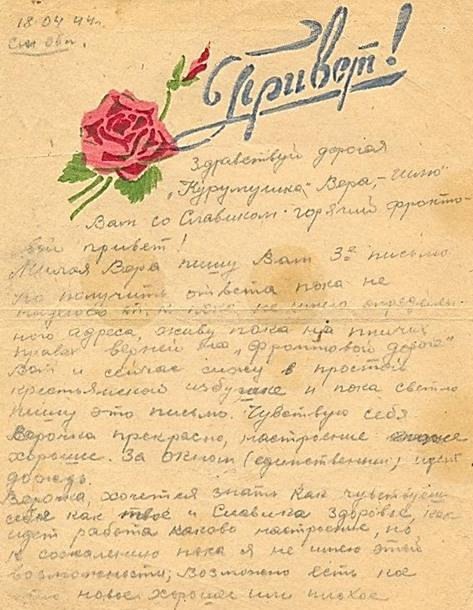 18.04.44г.
См. обл.
Привет!
Здравствуй дорогая
"Курумушка" Вера, - шлю
Вам со Славиком горячий фронто-
вой привет!
Милая Вера пишу Вам 3е письмо
но получить ответа пока не
и пока не имею определен-
ного адреса, живу пока на птичих
правах верней на "фронтовой дороге"
Вот и сейчас сижу в простой
крестьянской избушке и пока светло
пишу это письмо. Чувствую себя
Верочка прекрасно, настроение
хорошие. За окном (единственним) идет
дождь.
Верочка, хочется знать как чувствуеш
себя как твое и Славика здоровье, как
идет работа каково настроение, но,
к сожалению пока я не имею этой
возможности, возможно есть кое
что новое хорошее или плохое